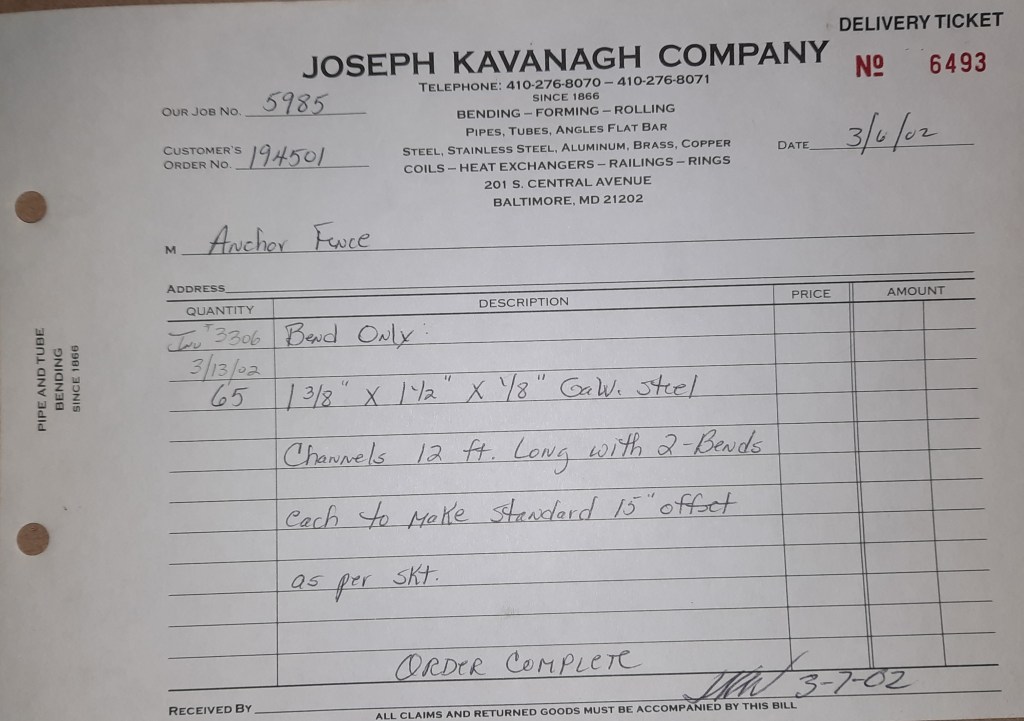 DELIVERY TICKET
JOSEPH KAVANAGH COMPANY
Nº 6493
TELEPHONE: 410-276-8070 – 410-276-8071
SINCE 1866
BENDING – FORMING – ROLLING
PIPES, TUBES, ANGLES FLAT BAR
STEEL, STAINLESS STEEL, ALUMINUM, BRASS, COPPER
COILS – HEAT EXCHANGERS – RAILINGS – RINGS
201 S. CENTRAL AVENUE
BALTIMORE, MD 21202
OUR JOB NO. 5985
CUSTOMER'S
ORDER NO. 194501
DATE 3/6/02
M Anchor Fence
ADDRESS
QUANTITY DESCRIPTION PRICE AMOUNT
Inv #3306 Bend Only:
3/13/02
65 1 3/8" X 1 1/2" X 1/8" Galv. Steel
Channels 12 ft. Long with 2-Bends
each to Make Standard 15" offset
as per skt.
ORDER COMPLETE
3-7-02
RECEIVED BY
ALL CLAIMS AND RETURNED GOODS MUST BE ACCOMPANIED BY THIS BILL
PIPE AND TUBE
BENDING
SINCE 1866